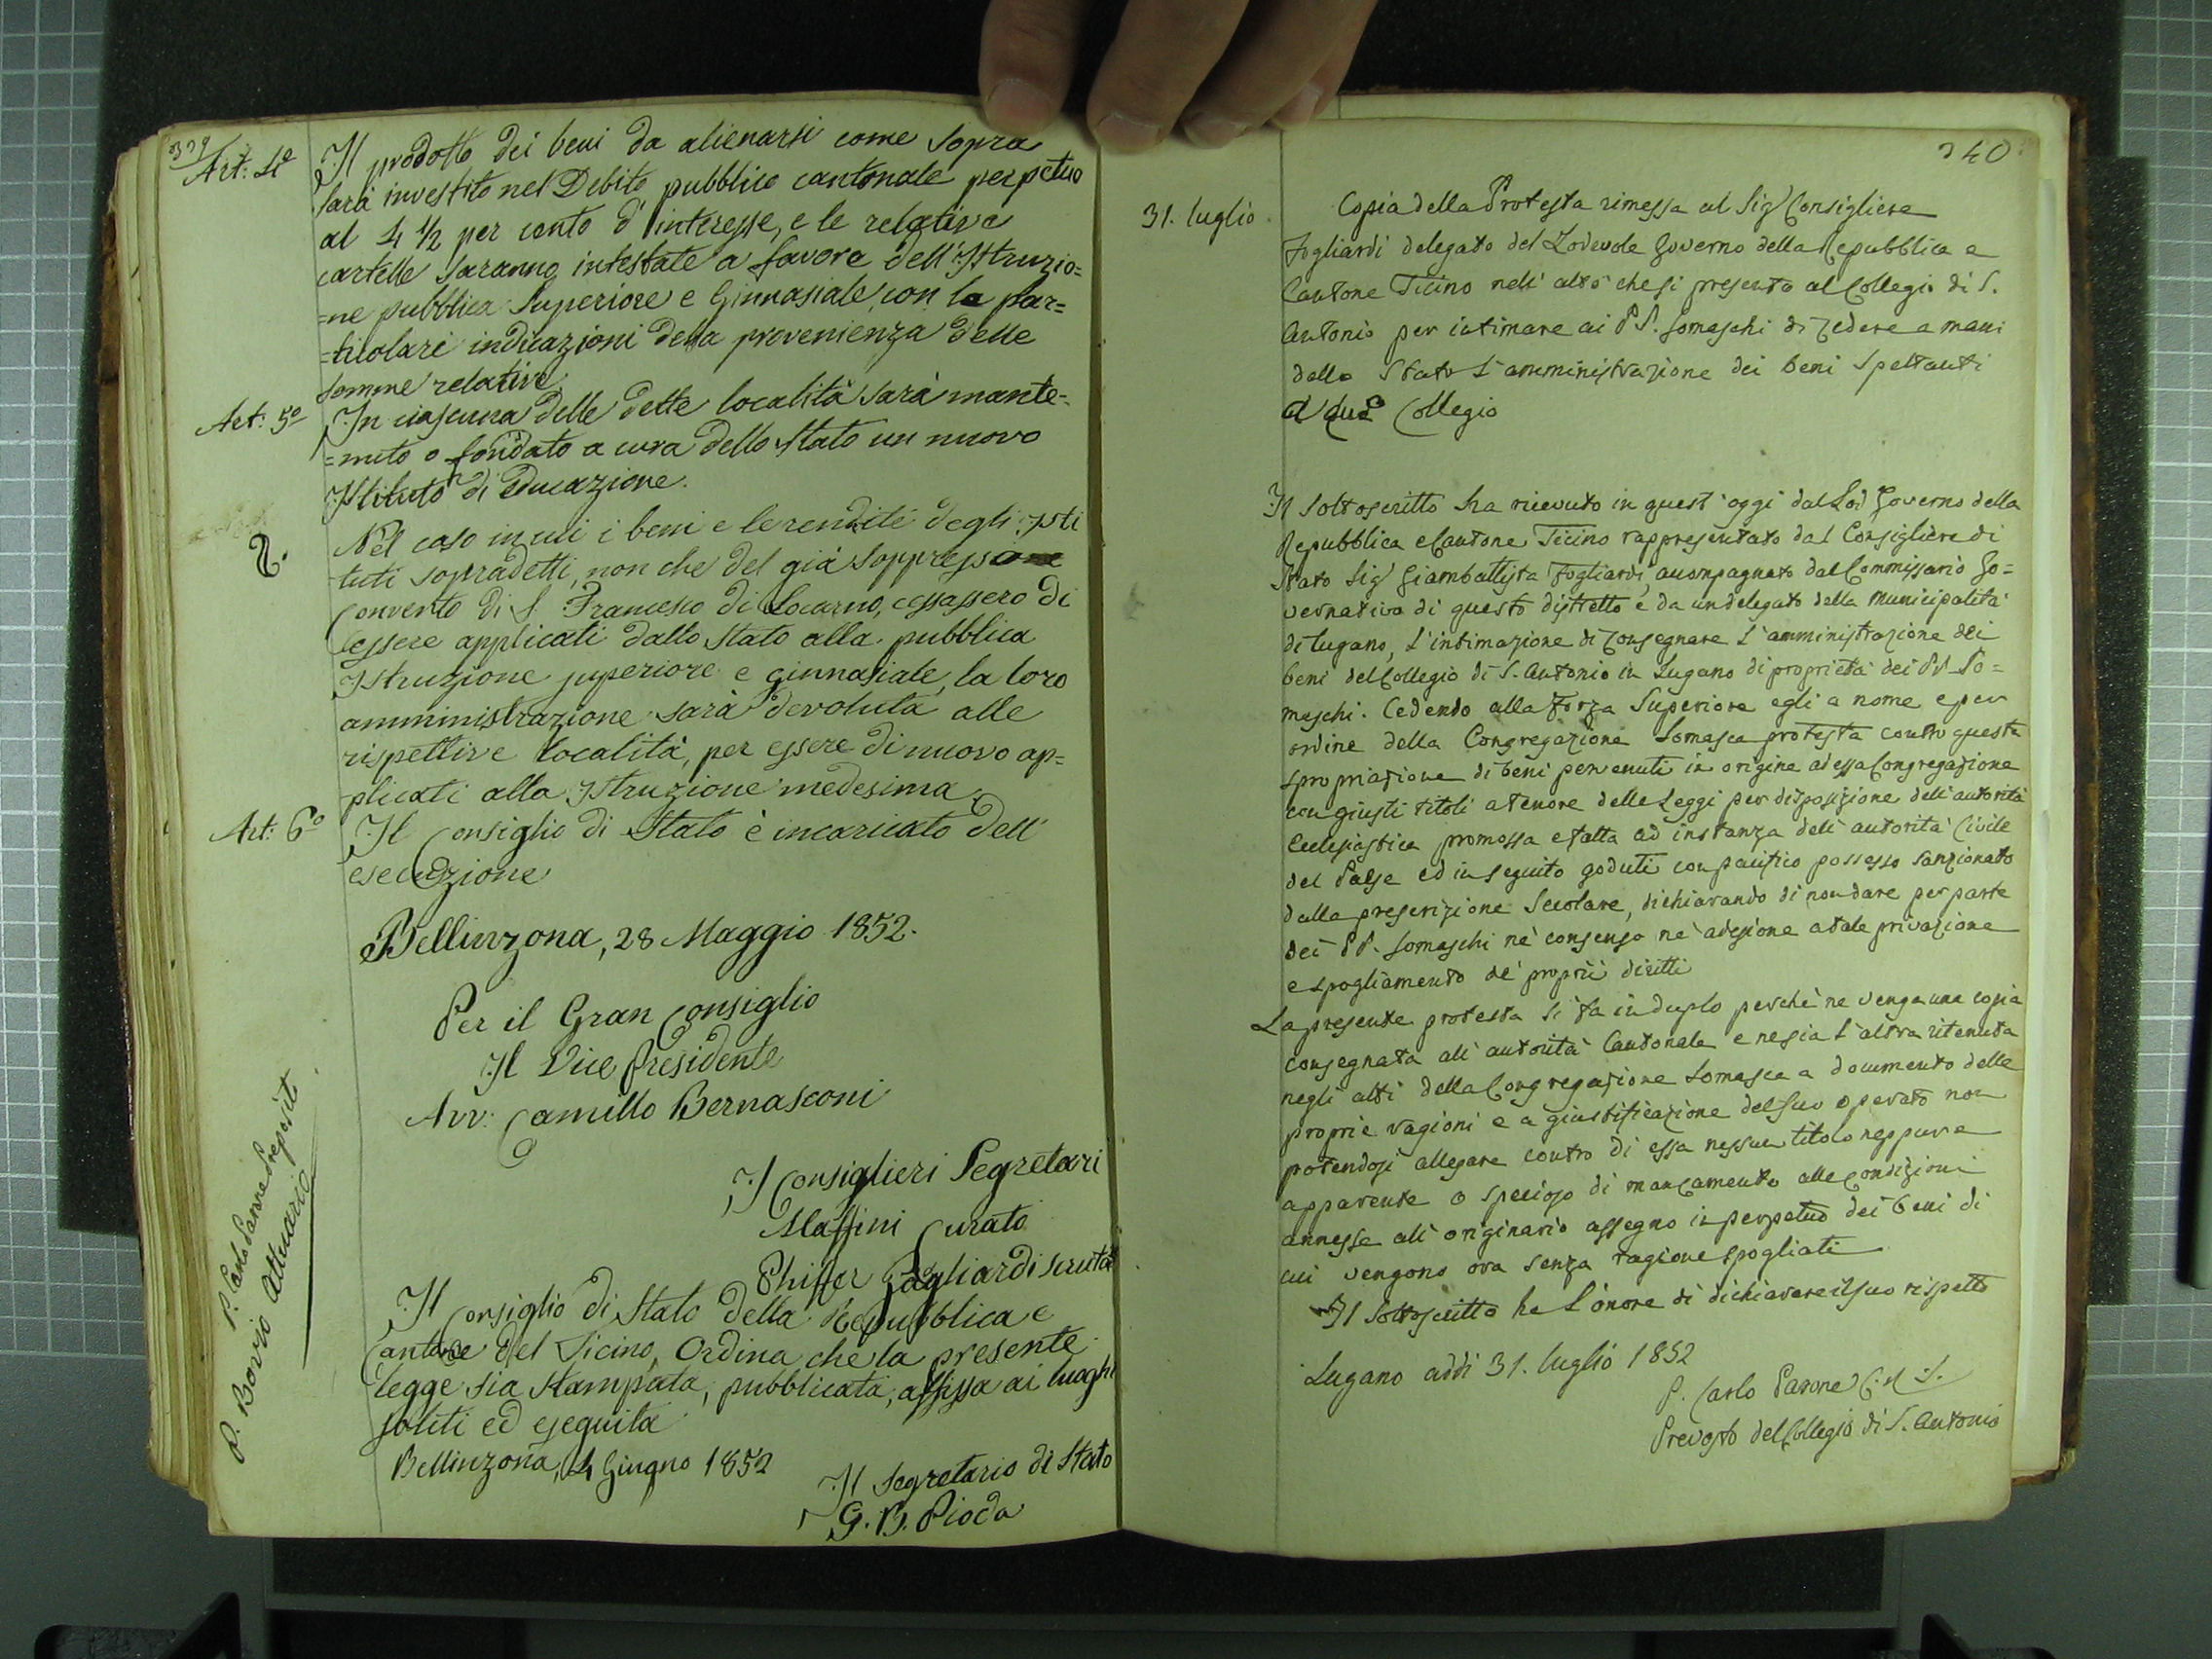 339
Art: 4º Il prodotto dei beni da alienarsi come sopra
sarà investito nel Debito pubblico cantonale perpetuo
al 4 1/2 per cento d'interesse, e le relative
cartelle saranno intestate a favore dell'Istruzio=
=ne pubblica Superiore e Ginnasiale, con le par=
=ticolari indicazioni della provenienza delle
somme relative.
Art: 5º In ciascuna delle dette località sarà mante=
=nuto o fondato a cura dello Stato un nuovo
Istituto di Educazione.
§. Nel caso in cui i beni e le rendite degli Isti
tuti sopradetti, non che del già soppresso
Convento di S. Francesco di Locarno, cessassero di
essere applicati dallo Stato alla pubblica
Istruzione superiore e ginnasiale, la loro
amministrazione sarà devoluta alle
rispettive località, per essere di nuovo ap=
plicati alla Istruzione medesima.
Art: 6º Il Consiglio di Stato è incaricato dell'
esecuzione
Bellinzona, 28 Maggio 1852.
Per il Gran Consiglio
Il Vice Presidente
Avv: Camillo Bernasconi
I Consiglieri Segretari
Maffini Curato
Phiffer Gagliardi scruta
Il Consiglio di Stato della Repubblica e
Cantone del Ticino, Ordina che la presente
legge sia stampata, pubblicata, affissa ai luoghi
soliti ed eseguita
Bellinzona, 4 Giugno 1852
Il Segretario di Stato
G. B. Pioda
P. Carlo Pavone Preposito
P. Bovio Attuario
340
31. luglio
Copia della Protesta rimessa al Sig Consigliere
Fogliardi delegato del Lodevole Governo della Repubblica e
Cantone Ticino nell'atto che si presenta al Collegio di S.
Antonio per intimare ai PP. Somaschi di cedere a mani
dello Stato l'amministrazione dei beni spettanti
al Collegio
Il Sottoscritto ha ricevuto in quest'oggi dal Lod Governo della
Repubblica e Cantone Ticino rappresentato dal Consigliere di
Stato Sig Giambattista Fogliardi, accompagnato dal Commissario Go=
vernativo di questo distretto e da un delegato della Municipalità
di Lugano, l'intimazione di consegnare l'amministrazione dei
beni del Collegio di S. Antonio in Lugano di proprietà dei PP. So=
maschi. Cedendo alla forza Superiore egli a nome e per
ordine della Congregazione Somasca protesta contro questa
spropriazione di beni pervenuti in origine ad essa Congregazione
con giusti titoli a tenore delle Leggi per disposizione dell'autorità
Ecclesiastica promossa e fatta ad instanza dell'autorità Civile
del Paese ed in seguito goduti con pacifico possesso sanzionato
dalla prescrizione Secolare, dichiarando di non dare per parte
dei PP. Somaschi nè consenso nè adesione a tale privazione
e spogliamento de' proprii diritti
La presente protesta si fa in duplo perchè ne venga una copia
consegnata all'autorità Cantonale e ne sia l'altra ritenuta
negli atti della Congregazione Somasca a documento delle
proprie ragioni e a giustificazione del suo operato non
potendosi allegare contro di essa nessun titolo neppure
apparente o specioso di mancamento alle condizioni
annesse all'originario assegno in perpetuo dei beni di
cui vengono ora senza ragione spogliati
Il Sottoscritto ha l'onore di dichiarare il suo rispetto
Lugano addì 31. luglio 1852
P. Carlo Pavone C.R.S.
Prevosto del Collegio di S. Antonio